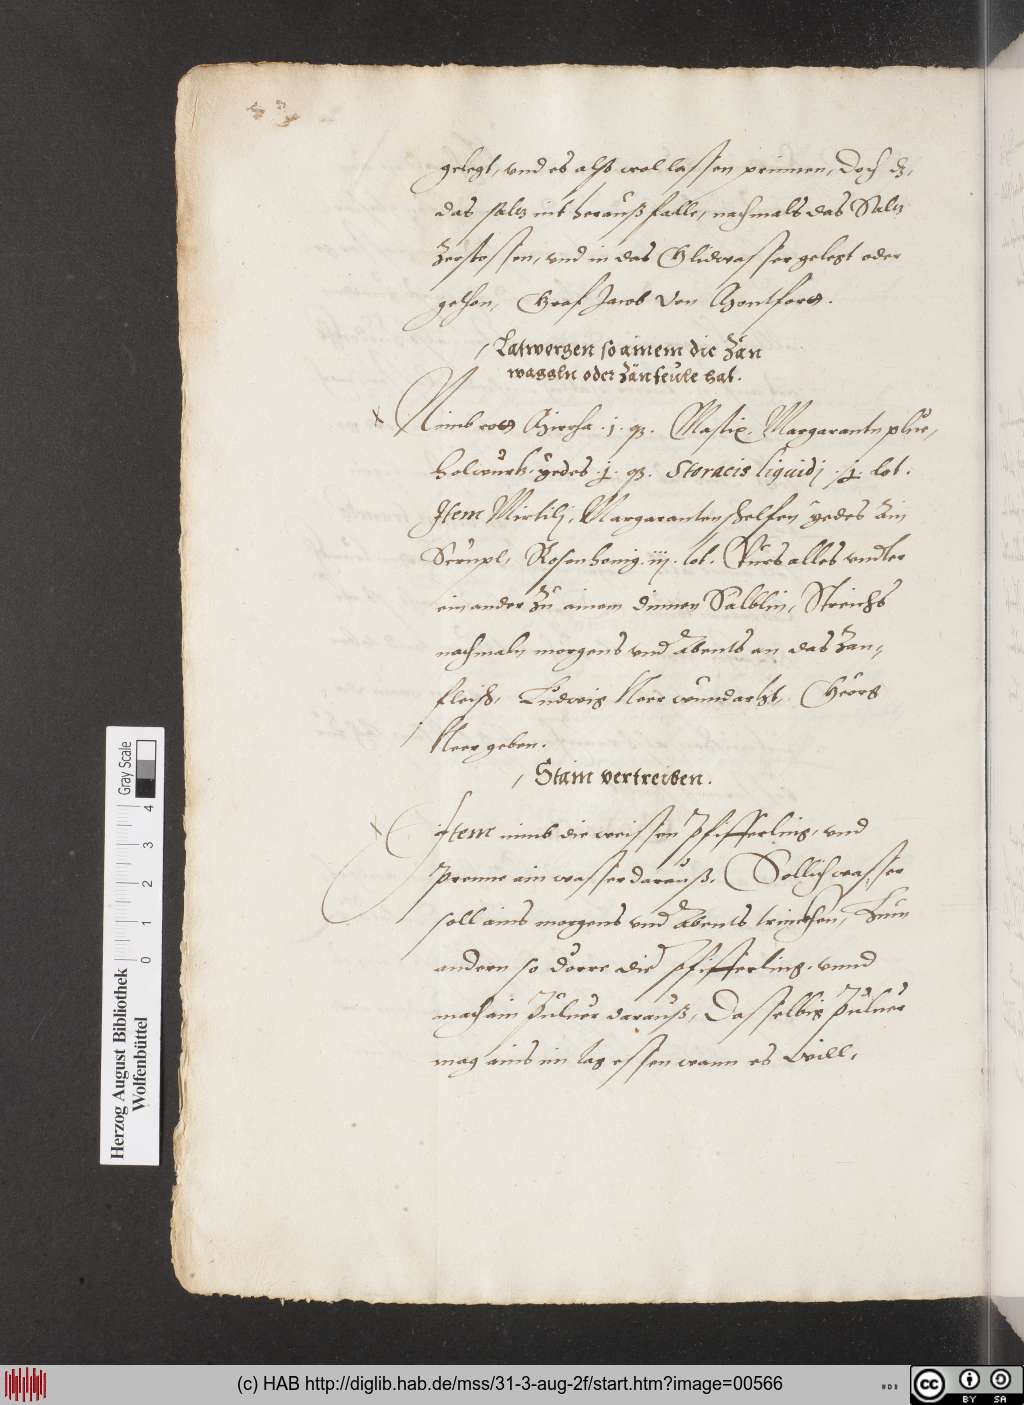 gelegt, vnd es also wol lassen prinnen, Doch dz,
das saltz nit herauß falle, nachmals das Saltz
Zerstossen, vnd in das Glidwasser gelegt oder
gethon, Graf Jacob von Montfort.
Latwergen so ainem die Zän
waggln oder Zänfeüle hat.
Nimb rott Mirrha .j. q. Mastix. Margaranten plüe,
holwurtz yedes .j. q. Storacis liquidj .j. lot.
Item Mirtilj, Margarantenschelfen yedes ain
Scrupl, Rosenhonig .iij. lot. Rürs alles vndter
ein ander Zu ainem dinnen Sälblin, Streichs
nachmaln morgens vnd Abents an das Zan-
fleisch, Ludwig Neer wundartzt, Geörg
Neer geben.
Stain vertreiben.
Item nimb die weissen Pfifferling, vnd
prenne ain wasser darauß, Sollich wasser
soll ains morgens vnd Abents trinckhen, Zum
andern so dörre die Pfifferling, vnnd
mach ain Puluer darauß, Dasselbig Puluer
mag ains im tag essen wann es will,
Herzog August Bibliothek
Wolfenbüttel
0 1 2 3 4
Gray Scale
(c) HAB http://diglib.hab.de/mss/31-3-aug-2f/start.htm?image=00566
cc BY SA